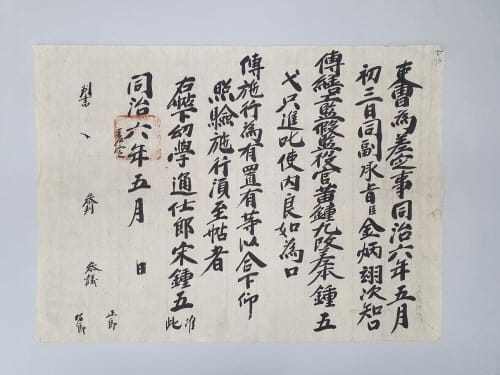 吏曹爲差定事同治六年五月
初三日同副承旨臣金炳翊次知口
傳繕工監假監役官黃鍾九改差宋鍾五
弋只進叱使內良如爲口
傳施行爲有置有等以合下仰
照驗施行須至帖者
右帖下幼學通仕郎宋鍾五 准此
同治六年五月 日
差定
判書
參判
參議
正郎
佐郎